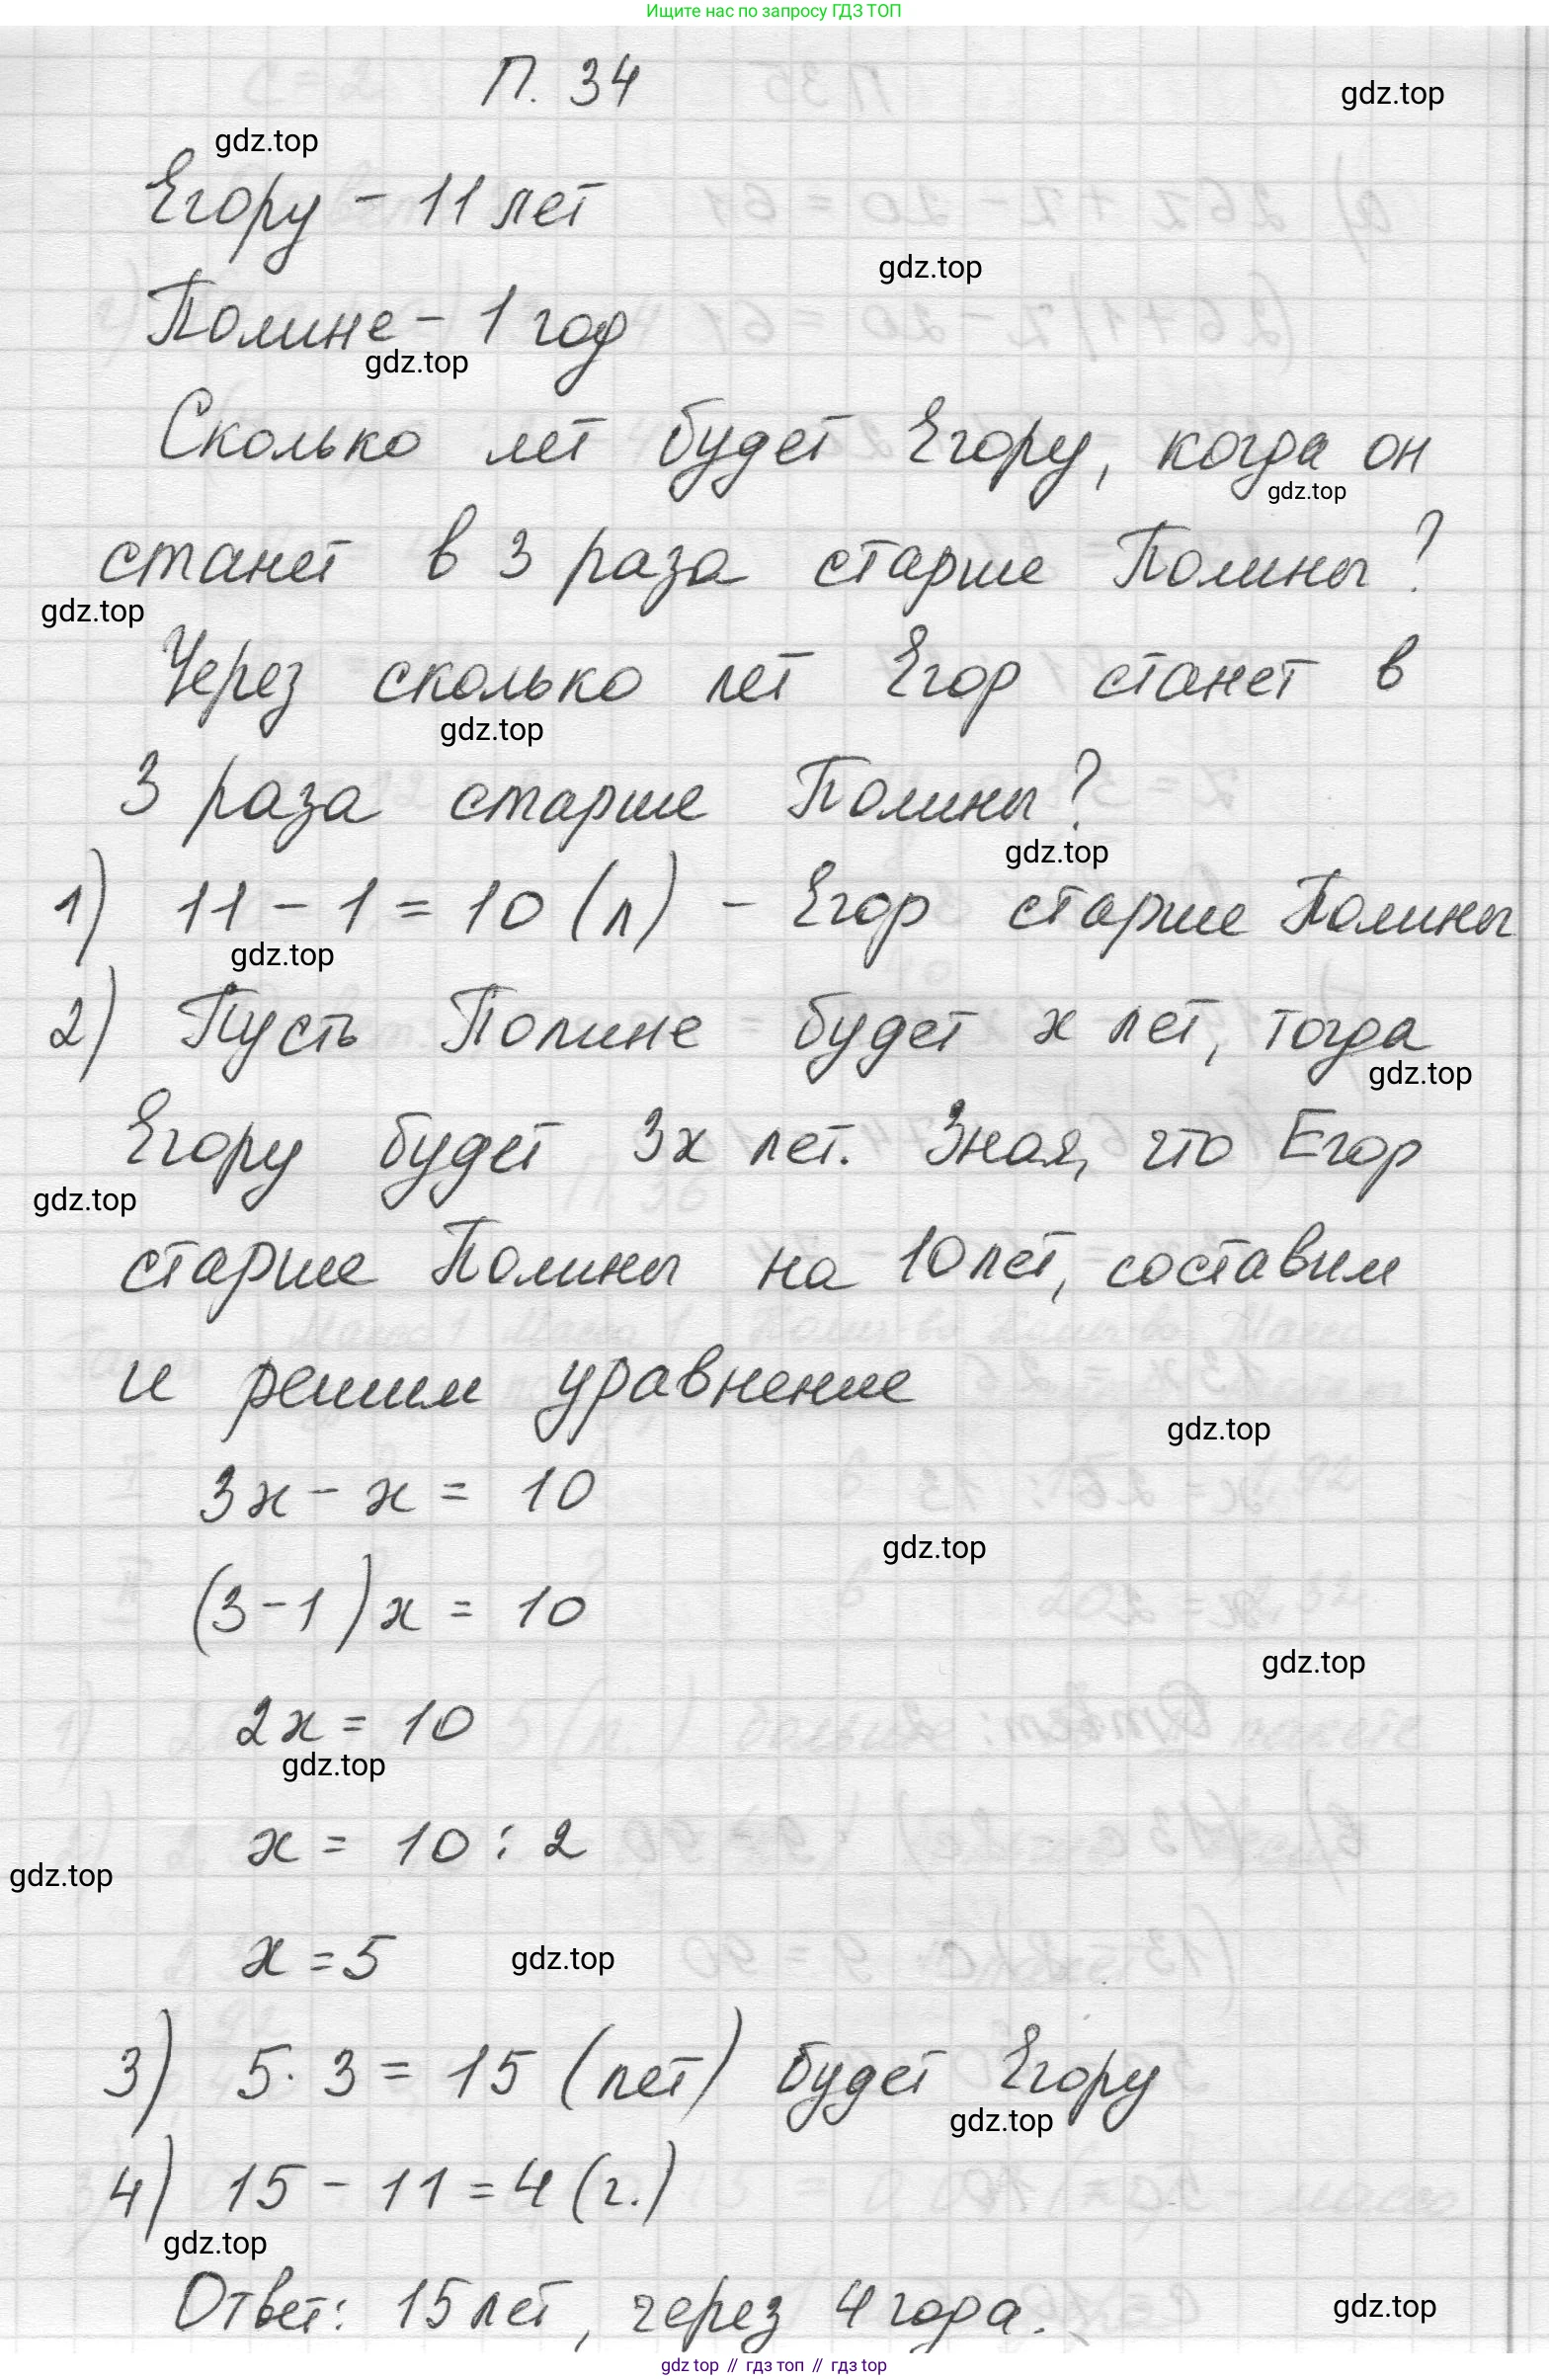 Ищите нас по запросу ГДЗ ТОП
П. 34
gdz.top
gdz.top
Егору - 11 лет
gdz.top
Полине - 1 год
gdz.top
Сколько лет будет Егору, когда он
gdz.top
станет в 3 раза старше Полины?
gdz.top
Через сколько лет Егор станет в
gdz.top
3 раза старше Полины?
gdz.top
1) 11 - 1 = 10 (л) - Егор старше Полины
gdz.top
2) Пусть Полине будет x лет, тогда
gdz.top
Егору будет 3x лет. Зная, что Егор
gdz.top
старше Полины на 10 лет, составим
и решим уравнение
gdz.top
3x - x = 10
gdz.top
(3 - 1) x = 10
gdz.top
2x = 10
gdz.top
x = 10 : 2
gdz.top
x = 5
gdz.top
3) 5 · 3 = 15 (лет) будет Егору
gdz.top
4) 15 - 11 = 4 (г.)
gdz.top
Ответ: 15 лет, через 4 года.
gdz.top
gdz top // гдз топ // гдз top